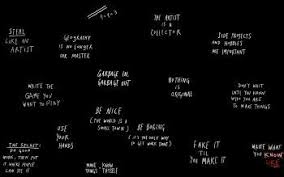 STEAL
LIKE AN
ARTIST
GEOGRAPHY
IS NO LONGER
OUR MASTER
THE ARTIST
IS A
COLLECTOR
SIDE PROJECTS
AND HOBBIES
ARE IMPORTANT
WRITE THE
YOU
WANT TO
GARBAGE IN
GARBAGE OUT
NOTHING
IS
ORIGINAL
DON'T WAIT
UNTIL YOU KNOW
WHO YOU ARE
TO MAKE THINGS
BE NICE
(THE WORLD IS A
SMALL TOWN)
USE
YOUR
HANDS
BE BORING
(IT'S THE ONLY WAY
TO GET WORK DONE)
THE SECRET:
DO GOOD
WORK, THEN PUT
IT WHERE PEOPLE
CAN SEE IT
MAKE
THINGS
KNOW
THYSELF
FAKE IT
'TIL
YOU MAKE IT
WRITE WHAT
YOU KNOW
LIKE